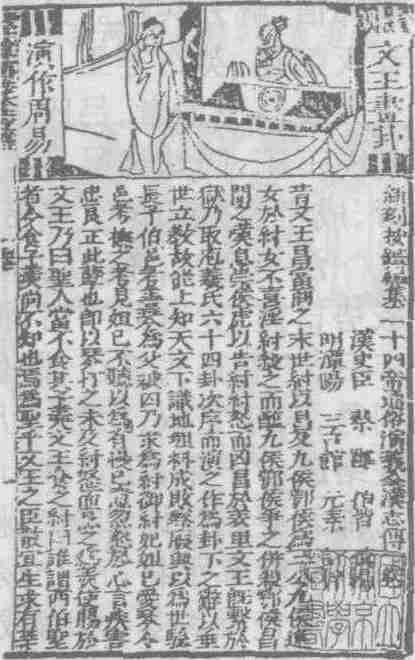 文王卦
演作周易
新刻按鑑編集二十四帝通俗演義全漢志傳
漢史臣 蔡邕 伯喈
明潭陽 三台館 元素
昔文王昌當商之末世紂以昌九侯鄂侯為三公九侯進
女於紂女不喜淫紂殺之而醢九侯鄂侯爭之併殺鄂侯昌
聞之嘆息崇侯虎以告紂紂怒而囚昌於羑里文王既繫於
獄乃取庖羲氏六十四卦次序而演之作為卦下之辭以垂
世立教故能上知天文下識地理料成敗終無以為世驗
長子伯邑考孝為父被囚乃求為紂御紂妃妲己愛琴令
邑考撫之考見妲己不聽以為有謾己意忽然於心言疾害
忠良正此輩也即以琴打之未及紂怒而烹之作羹使賜於
文王乃曰聖人當不食其子羹文王食之紂曰誰謂西伯聖
者今食子羹尚不知也焉為聖乎文王之臣散宜生求有莘